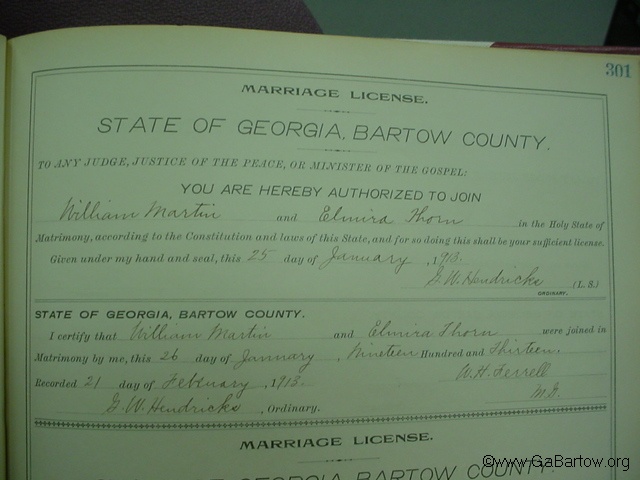 301
MARRIAGE LICENSE.
STATE OF GEORGIA, BARTOW COUNTY.
TO ANY JUDGE, JUSTICE OF THE PEACE, OR MINISTER OF THE GOSPEL:
YOU ARE HEREBY AUTHORIZED TO JOIN
William Martin and Elmira Thorn in the Holy State of
Matrimony, according to the Constitution and laws of this State, and for so doing this shall be your sufficient license.
Given under my hand and seal, this 25 day of January , 1913.
G. W. Hendricks (L. S.)
ORDINARY.
STATE OF GEORGIA, BARTOW COUNTY.
I certify that William Martin and Elmira Thorn were joined in
Matrimony by me, this 26 day of January , Nineteen Hundred and Thirteen.
Recorded 21 day of February , 1913. W. H. Ferrell
G. W. Hendricks , Ordinary. M. G.
MARRIAGE LICENSE.
STATE OF GEORGIA, BARTOW COUNTY.
©www.GaBartow.org